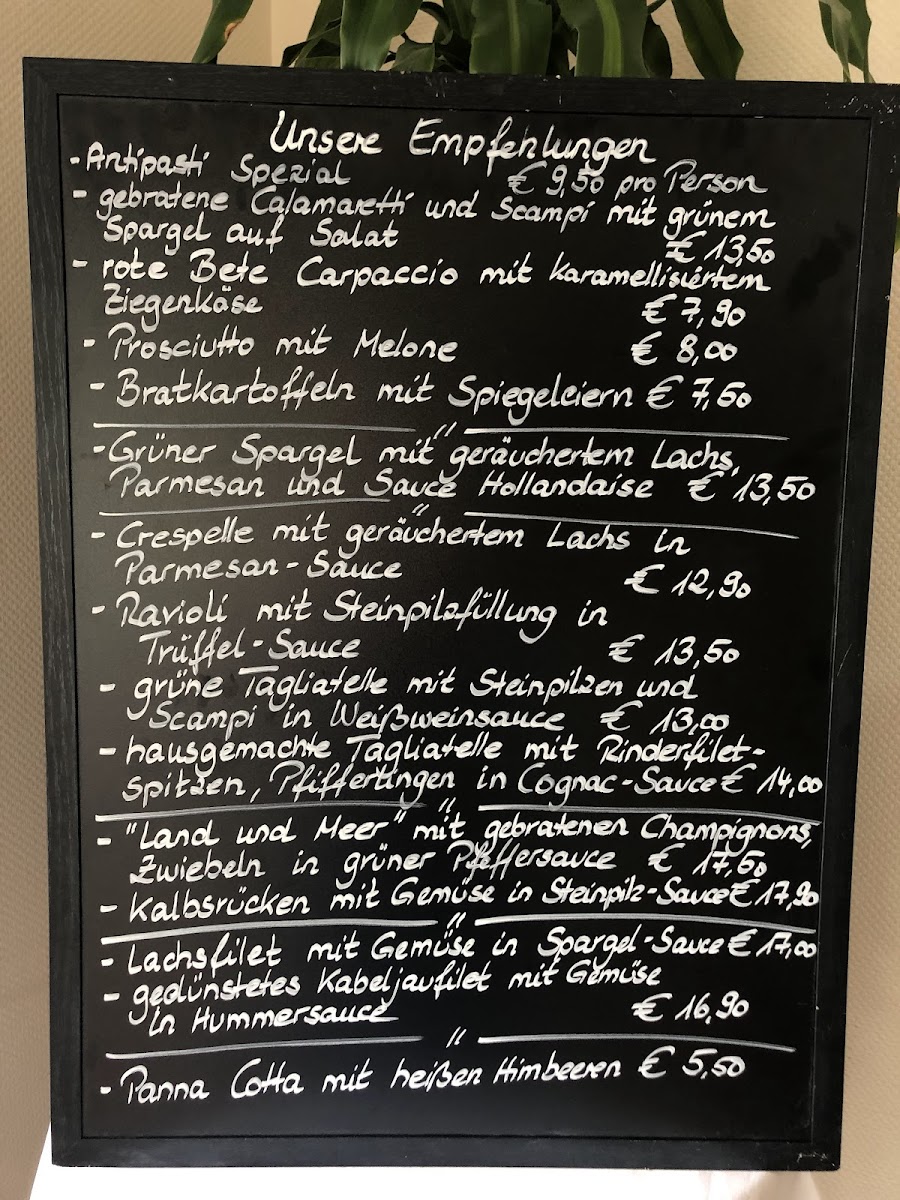 Unsere Empfehlungen
- Antipasti Spezial € 9,50 pro Person
- gebratene Calamaretti und Scampi mit grünem
Spargel auf Salat € 13,50
- rote Bete Carpaccio mit karamellisiertem
Ziegenkäse € 7,90
- Prosciutto mit Melone € 8,00
- Bratkartoffeln mit Spiegeleiern € 7,50
"
- Grüner Spargel mit geräuchertem Lachs,
Parmesan und Sauce Hollandaise € 13,50
"
- Crespelle mit geräuchertem Lachs in
Parmesan-Sauce € 12,90
- Ravioli mit Steinpilzfüllung in
Trüffel-Sauce € 13,50
- grüne Tagliatelle mit Steinpilzen und
Scampi in Weißweinsauce € 13,00
- hausgemachte Tagliatelle mit Rinderfilet-
spitzen, Pfifferlingen in Cognac-Sauce € 14,00
"
- "Land und Meer" mit gebratenen Champignons,
Zwiebeln in grüner Pfeffersauce € 17,50
- Kalbsrücken mit Gemüse in Steinpilz-Sauce € 17,90
"
- Lachsfilet mit Gemüse in Spargel-Sauce € 17,00
- gedünstetes Kabeljaufilet mit Gemüse
in Hummersauce € 16,90
"
- Panna Cotta mit heißen Himbeeren € 5,50